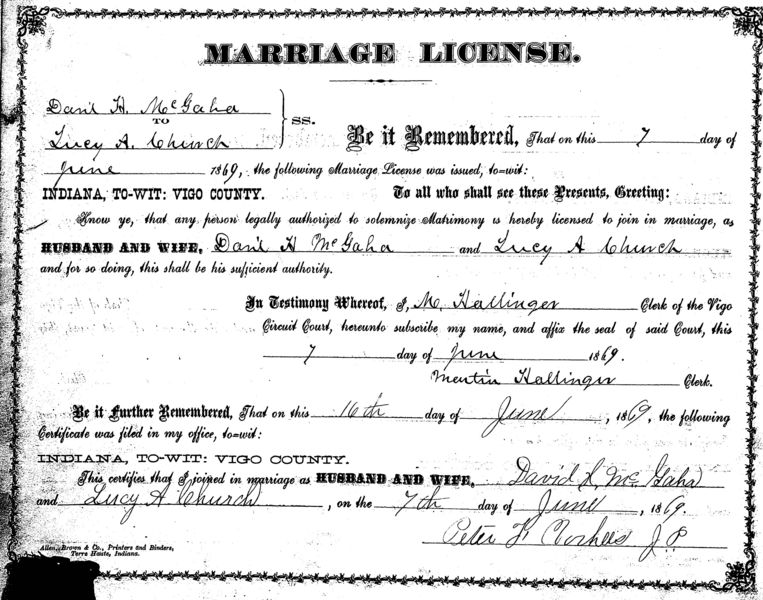 MARRIAGE LICENSE.
David H. McGaha
TO
Lucy A. Church
SS.
Be it Remembered, That on this 7 day of
June 1869, the following Marriage License was issued, to=wit:
INDIANA, TO-WIT: VIGO COUNTY. To all who shall see these Presents, Greeting:
Know ye, that any person legally authorized to solemnize Matrimony is hereby licensed to join in marriage, as
HUSBAND AND WIFE, David H McGaha and Lucy A Church
and for so doing, this shall be his sufficient authority.
In Testimony Whereof, I, M. Hallinger Clerk of the Vigo
Circuit Court, hereunto subscribe my name, and affix the seal of said Court, this
7 day of June 1869.
Martin Hallinger Clerk.
Be it Further Remembered, That on this 16th day of June, 1869, the following
Certificate was filed in my office, to=wit:
INDIANA, TO-WIT: VIGO COUNTY.
This certifies that I joined in marriage as HUSBAND AND WIFE, David H McGaha
and Lucy A Church, on the 7th day of June, 1869.
Peter F. J.P
Allen, Brown & Co., Printers and Binders,
Terre Haute, Indiana.